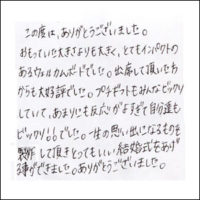 この度は、ありがとうございました。
おもっていた大きさよりも大きく、とてもインパクトの
あるウェルカムボードでした。出席して頂いたわ
からも大好評でした。プチギフトもみんなビックリ
していて、あまりにも反応がよすぎて自分達も
ビックリ!!でした。一生の思い出になるものを
製作して頂きとってもいい結婚式をあげ
る事ができました。ありがとうございました。